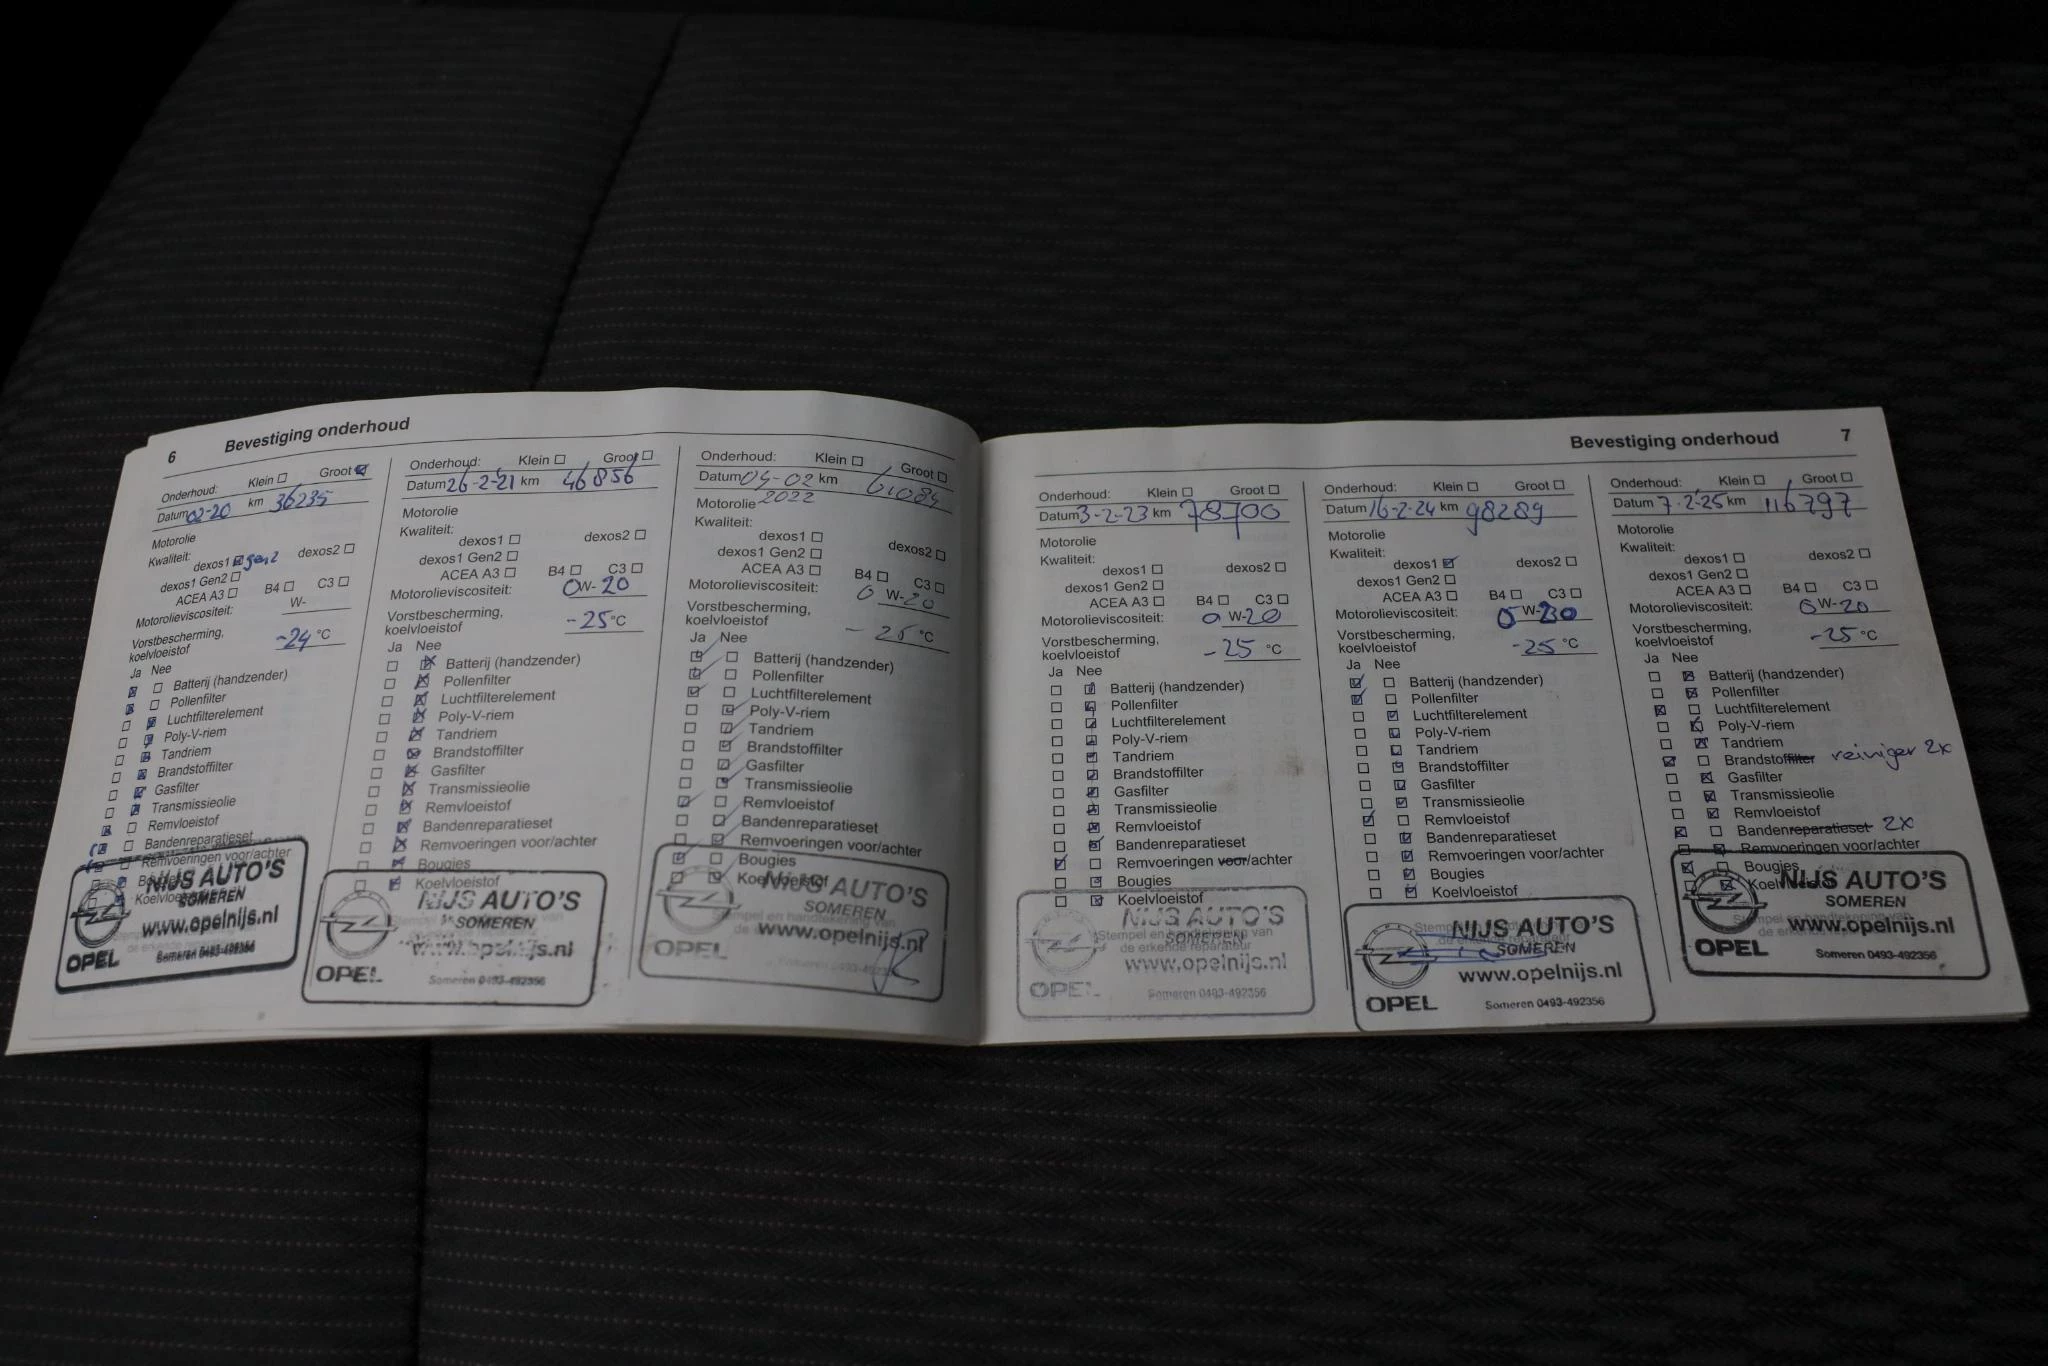 6 Bevestiging onderhoud
Onderhoud: Klein Groot
Datum 02-20 km 36235
Motorolie
Kwaliteit:
dexos1 gen2 dexos2
dexos1 Gen2
ACEA A3 B4 C3
Motorolieviscositeit: W-
Vorstbescherming,
koelvloeistof -24 °C
Ja Nee
Batterij (handzender)
Pollenfilter
Luchtfilterelement
Poly-V-riem
Tandriem
Brandstoffilter
Gasfilter
Transmissieolie
Remvloeistof
Bandenreparatieset
Remvoeringen voor/achter
Bougies
Koelvloeistof
NIJS AUTO'S
SOMEREN
www.opelnijs.nl
OPEL Someren 0493-492356
Onderhoud: Klein Groot
Datum 26-2-21 km 46856
Motorolie
Kwaliteit:
dexos1 dexos2
dexos1 Gen2
ACEA A3 B4 C3
Motorolieviscositeit: 0W-20
Vorstbescherming,
koelvloeistof -25 °C
Ja Nee
Batterij (handzender)
Pollenfilter
Luchtfilterelement
Poly-V-riem
Tandriem
Brandstoffilter
Gasfilter
Transmissieolie
Remvloeistof
Bandenreparatieset
Remvoeringen voor/achter
Bougies
Koelvloeistof
NIJS AUTO'S
SOMEREN
www.opelnijs.nl
OPEL Someren 0493-492356
Onderhoud: Klein Groot
Datum 04-02 km 61084
Motorolie 2022
Kwaliteit:
dexos1 dexos2
dexos1 Gen2
ACEA A3 B4 C3
Motorolieviscositeit: 0 W-20
Vorstbescherming,
koelvloeistof -25 °C
Ja Nee
Batterij (handzender)
Pollenfilter
Luchtfilterelement
Poly-V-riem
Tandriem
Brandstoffilter
Gasfilter
Transmissieolie
Remvloeistof
Bandenreparatieset
Remvoeringen voor/achter
Bougies
Koelvloeistof
NIJS AUTO'S
SOMEREN
Stempel en handtekening van
www.opelnijs.nl
OPEL
Bevestiging onderhoud 7
Onderhoud: Klein Groot
Datum 3-2-23 km 78700
Motorolie
Kwaliteit:
dexos1 dexos2
dexos1 Gen2
ACEA A3 B4 C3
Motorolieviscositeit: 0 W-20
Vorstbescherming,
koelvloeistof -25 °C
Ja Nee
Batterij (handzender)
Pollenfilter
Luchtfilterelement
Poly-V-riem
Tandriem
Brandstoffilter
Gasfilter
Transmissieolie
Remvloeistof
Bandenreparatieset
Remvoeringen voor/achter
Bougies
Koelvloeistof
NIJS AUTO'S
Stempel en handtekening van
SOMEREN
de erkende reparateur
www.opelnijs.nl
OPEL Someren 0493-492356
Onderhoud: Klein Groot
Datum 16-2-24 km 98289
Motorolie
Kwaliteit:
dexos1 dexos2
dexos1 Gen2
ACEA A3 B4 C3
Motorolieviscositeit: 0 W-20
Vorstbescherming,
koelvloeistof -25 °C
Ja Nee
Batterij (handzender)
Pollenfilter
Luchtfilterelement
Poly-V-riem
Tandriem
Brandstoffilter
Gasfilter
Transmissieolie
Remvloeistof
Bandenreparatieset
Remvoeringen voor/achter
Bougies
Koelvloeistof
NIJS AUTO'S
SOMEREN
www.opelnijs.nl
OPEL Someren 0493-492356
Onderhoud: Klein Groot
Datum 7-2-25 km 116797
Motorolie
Kwaliteit:
dexos1 dexos2
dexos1 Gen2
ACEA A3 B4 C3
Motorolieviscositeit: 0 W-20
Vorstbescherming,
koelvloeistof -25 °C
Ja Nee
Batterij (handzender)
Pollenfilter
Luchtfilterelement
Poly-V-riem
Tandriem
Brandstoffilter reiniger 2x
Gasfilter
Transmissieolie
Remvloeistof
Bandenreparatieset 2x
Remvoeringen voor/achter
Bougies
Koelvloeistof
NIJS AUTO'S
SOMEREN
www.opelnijs.nl
OPEL Someren 0493-492356